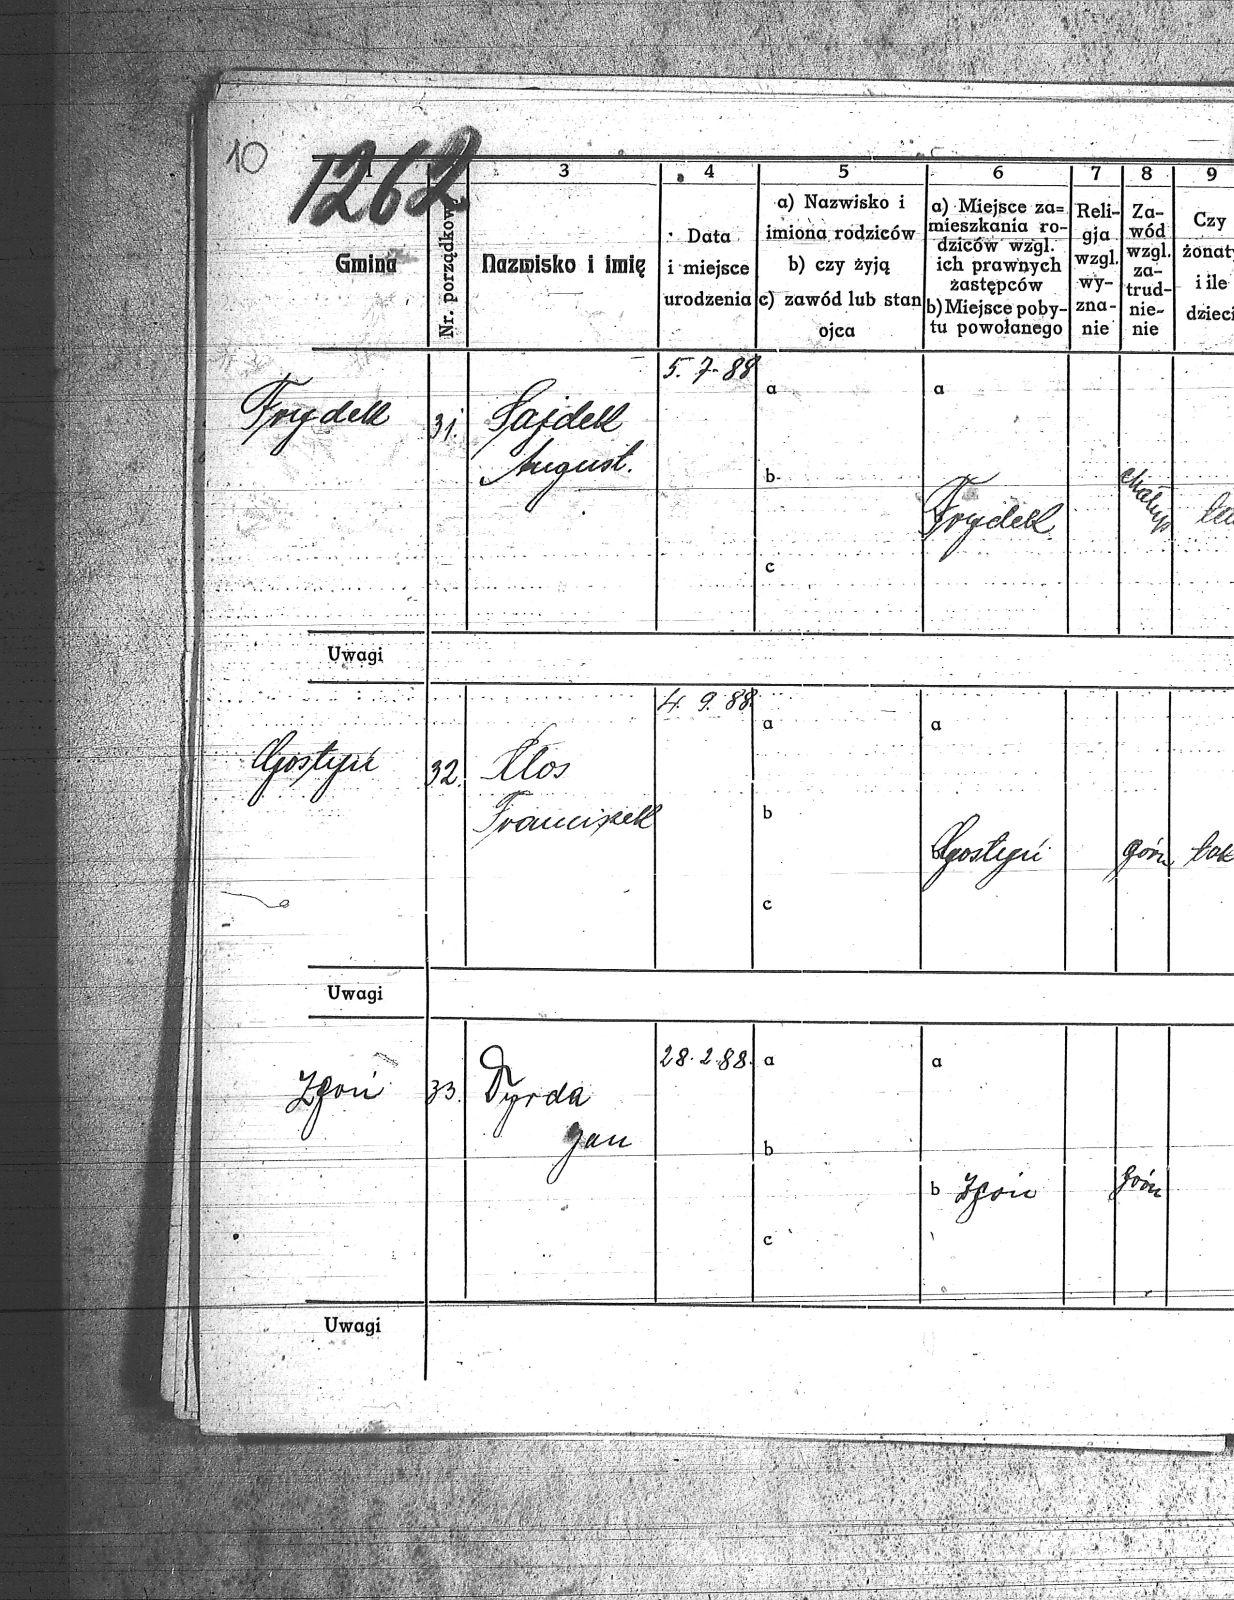 10
1262
1 3 4 5 6 7 8 9
Gmina
Nr. porządkow
Nazwisko i imię
Data
i miejsce
urodzenia
a) Nazwisko i
imiona rodziców
b) czy żyją
c) zawód lub stan
ojca
a) Miejsce za=
mieszkania ro-
dziców wzgl.
ich prawnych
zastępców
b) Miejsce poby-
tu powołanego
Reli-
gja
wzgl.
wy-
zna-
nie
Za-
wód
wzgl.
za-
trud-
nie-
nie
Czy
żonaty
i ile
dzieci
5. 7. 88
a a
Frydek 31. Sajdek
August.
b.
Frydek
c
Uwagi
4. 9. 88.
a a
Gostyń 32. Kłos
Franciszek
b
b Gostyń górn tak
c
Uwagi
28. 2. 88. a a
Zgoń 33. Dyrda
Jan
b
b Zgoń górn
c
Uwagi